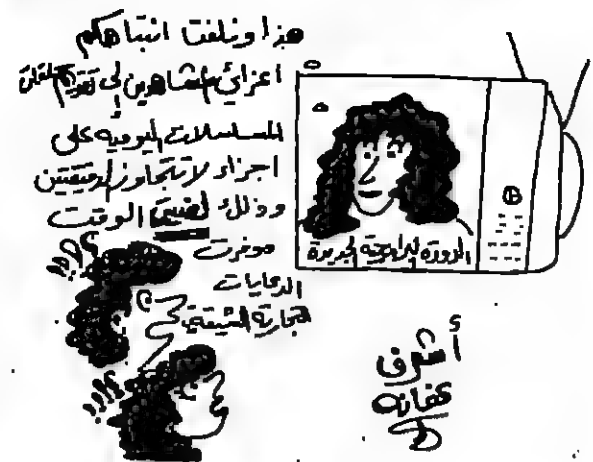 هذا ونلفت انتباهكم
اعزائي المشاهدين إلى تقديم حلقات
المسلسلات اليومية على
اجزاء لا تتجاوز دقيقتين
وذلك لضيق الوقت
الدعايات
التجارية الشيقة
الدورة البرامجية الجديدة
أشرف